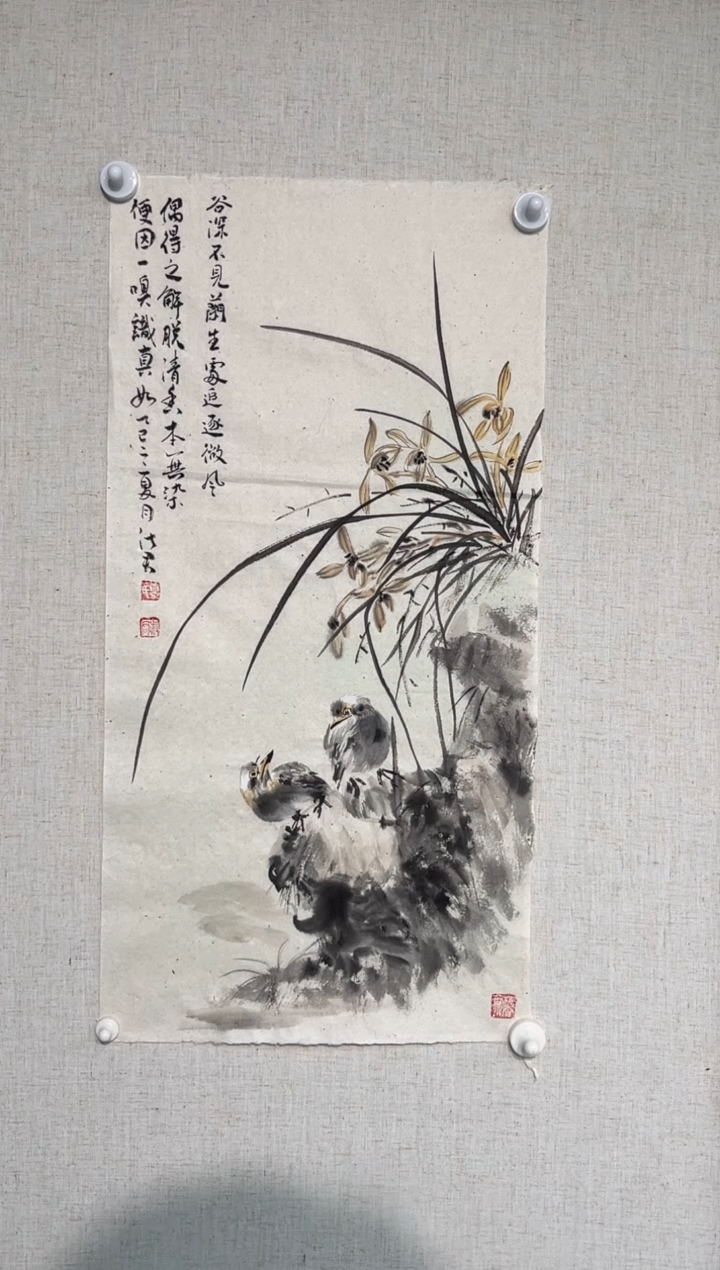 谷深不见蘭生處追逐微风
偶得之解脱清香本無染
便因一嗅識真如乙巳之夏月